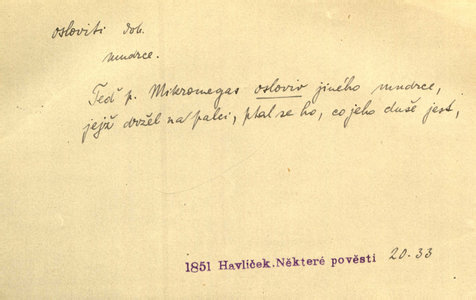 osloviti dok.
mudrce.
Teď p. Mikromegas osloviv jiného mudrce,
jejž držel na palci, ptal se ho, co jeho duše jest,
1851 Havlíček.Některé pověsti 20.33